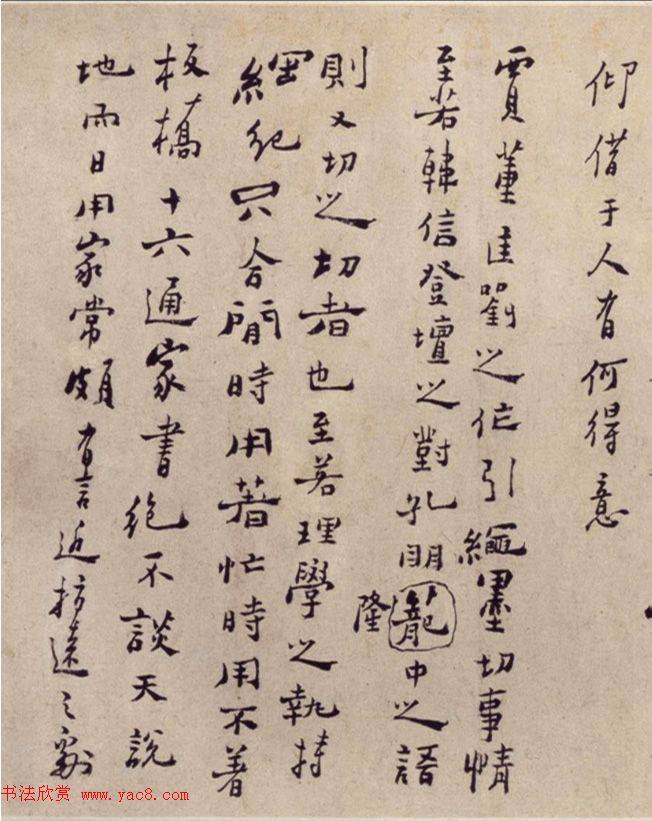 仰借于人有何得意
賈董匡劉之作引繩墨切事情
至若韓信登壇之對孔明隆中之語
則又切之切者也至若理學之執持
綱紀只合閒時用著忙時用不著
板橋十六通家書絶不談天説
地而日用家常頗有言近指遠之處
书法欣赏 www.yac8.com